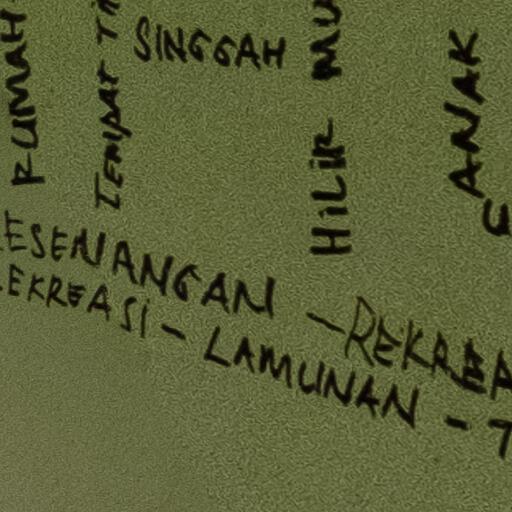 RUMAH
TEMPAT
SINGGAH
HILIR MU
ANAK
ESENANGAN - REKABA
EKREASI - LAMUNAN - T